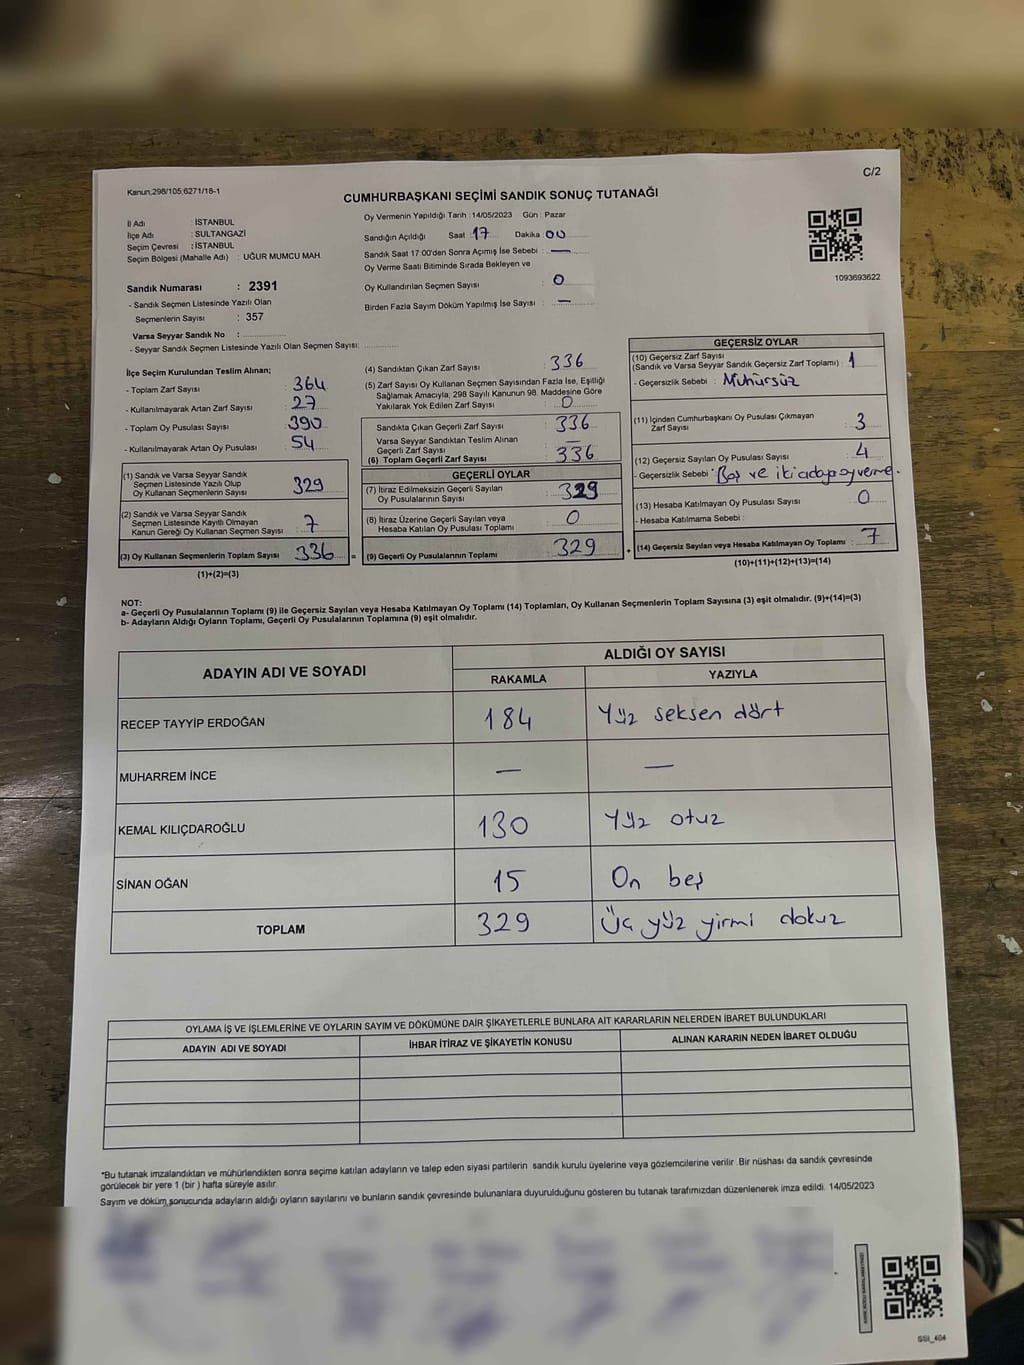 C/2
Kanun:298/105;6271/18-1
CUMHURBAŞKANI SEÇİMİ SANDIK SONUÇ TUTANAĞI
İl Adı : İSTANBUL
İlçe Adı : SULTANGAZİ
Seçim Çevresi : İSTANBUL
Seçim Bölgesi (Mahalle Adı) : UĞUR MUMCU MAH.
Sandık Numarası : 2391
- Sandık Seçmen Listesinde Yazılı Olan
Seçmenlerin Sayısı : 357
Varsa Seyyar Sandık No :
- Seyyar Sandık Seçmen Listesinde Yazılı Olan Seçmen Sayısı:
Oy Vermenin Yapıldığı Tarih : 14/05/2023 Gün : Pazar
Sandığın Açıldığı Saat : 17 Dakika : 00
Sandık Saat 17:00'den Sonra Açımış İse Sebebi : —
Oy Verme Saati Bitiminde Sırada Bekleyen ve
Oy Kullandırılan Seçmen Sayısı : 0
Birden Fazla Sayım Döküm Yapılmış İse Sayısı : —
1093693622
İlçe Seçim Kurulundan Teslim Alınan;
- Toplam Zarf Sayısı : 364
- Kullanılmayarak Artan Zarf Sayısı : 27
- Toplam Oy Pusulası Sayısı : 390
- Kullanılmayarak Artan Oy Pusulası : 54
(1) Sandık ve Varsa Seyyar Sandık
Seçmen Listesinde Yazılı Olup
Oy Kullanan Seçmenlerin Sayısı : 329
(2) Sandık ve Varsa Seyyar Sandık
Seçmen Listesinde Kayıtlı Olmayan
Kanun Gereği Oy Kullanan Seçmen Sayısı : 7
(3) Oy Kullanan Seçmenlerin Toplam Sayısı : 336 =
(1)+(2)=(3)
(4) Sandıktan Çıkan Zarf Sayısı : 336
(5) Zarf Sayısı Oy Kullanan Seçmen Sayısından Fazla İse, Eşitliği
Sağlamak Amacıyla, 298 Sayılı Kanunun 98. Maddesine Göre
Yakılarak Yok Edilen Zarf Sayısı : 0
Sandıkta Çıkan Geçerli Zarf Sayısı : 336
Varsa Seyyar Sandıktan Teslim Alınan
Geçerli Zarf Sayısı : —
(6) Toplam Geçerli Zarf Sayısı : 336
GEÇERLİ OYLAR
(7) İtiraz Edilmeksizin Geçerli Sayılan
Oy Pusulalarının Sayısı : 329
(8) İtiraz Üzerine Geçerli Sayılan veya
Hesaba Katılan Oy Pusulası Toplamı : 0
(9) Geçerli Oy Pusulalarının Toplamı : 329
GEÇERSİZ OYLAR
(10) Geçersiz Zarf Sayısı : 1
(Sandık ve Varsa Seyyar Sandık Geçersiz Zarf Toplamı)
- Geçersizlik Sebebi : Mühürsüz
(11) İçinden Cumhurbaşkanı Oy Pusulası Çıkmayan
Zarf Sayısı : 3
(12) Geçersiz Sayılan Oy Pusulası Sayısı : 4
- Geçersizlik Sebebi : Boş ve iki adaya oy verme.
(13) Hesaba Katılmayan Oy Pusulası Sayısı : 0
- Hesaba Katılmama Sebebi :
(14) Geçersiz Sayılan veya Hesaba Katılmayan Oy Toplamı : 7
(10)+(11)+(12)+(13)=(14)
NOT:
a- Geçerli Oy Pusulalarının Toplamı (9) ile Geçersiz Sayılan veya Hesaba Katılmayan Oy Toplamı (14) Toplamları, Oy Kullanan Seçmenlerin Toplam Sayısına (3) eşit olmalıdır. (9)+(14)=(3)
b- Adayların Aldığı Oyların Toplamı, Geçerli Oy Pusulalarının Toplamına (9) eşit olmalıdır.
ADAYIN ADI VE SOYADI
ALDIĞI OY SAYISI
RAKAMLA YAZIYLA
RECEP TAYYİP ERDOĞAN 184 Yüz seksen dört
MUHARREM İNCE — —
KEMAL KILIÇDAROĞLU 130 Yüz otuz
SİNAN OĞAN 15 On beş
TOPLAM 329 Üç yüz yirmi dokuz
OYLAMA İŞ VE İŞLEMLERİNE VE OYLARIN SAYIM VE DÖKÜMÜNE DAİR ŞİKAYETLERLE BUNLARA AİT KARARLARIN NELERDEN İBARET BULUNDUKLARI
ADAYIN ADI VE SOYADI İHBAR İTİRAZ VE ŞİKAYETİN KONUSU ALINAN KARARIN NEDEN İBARET OLDUĞU
*Bu tutanak imzalandıktan ve mühürlendikten sonra seçime katılan adayların ve talep eden siyasi partilerin sandık kurulu üyelerine veya gözlemcilerine verilir. Bir nüshası da sandık çevresinde
görülecek bir yere 1 (bir ) hafta süreyle asılır.
Sayım ve döküm sonucunda adayların aldığı oyların sayılarını ve bunların sandık çevresinde bulunanlara duyurulduğunu gösteren bu tutanak tarafımızdan düzenlenerek imza edildi. 14/05/2023
SSI_404